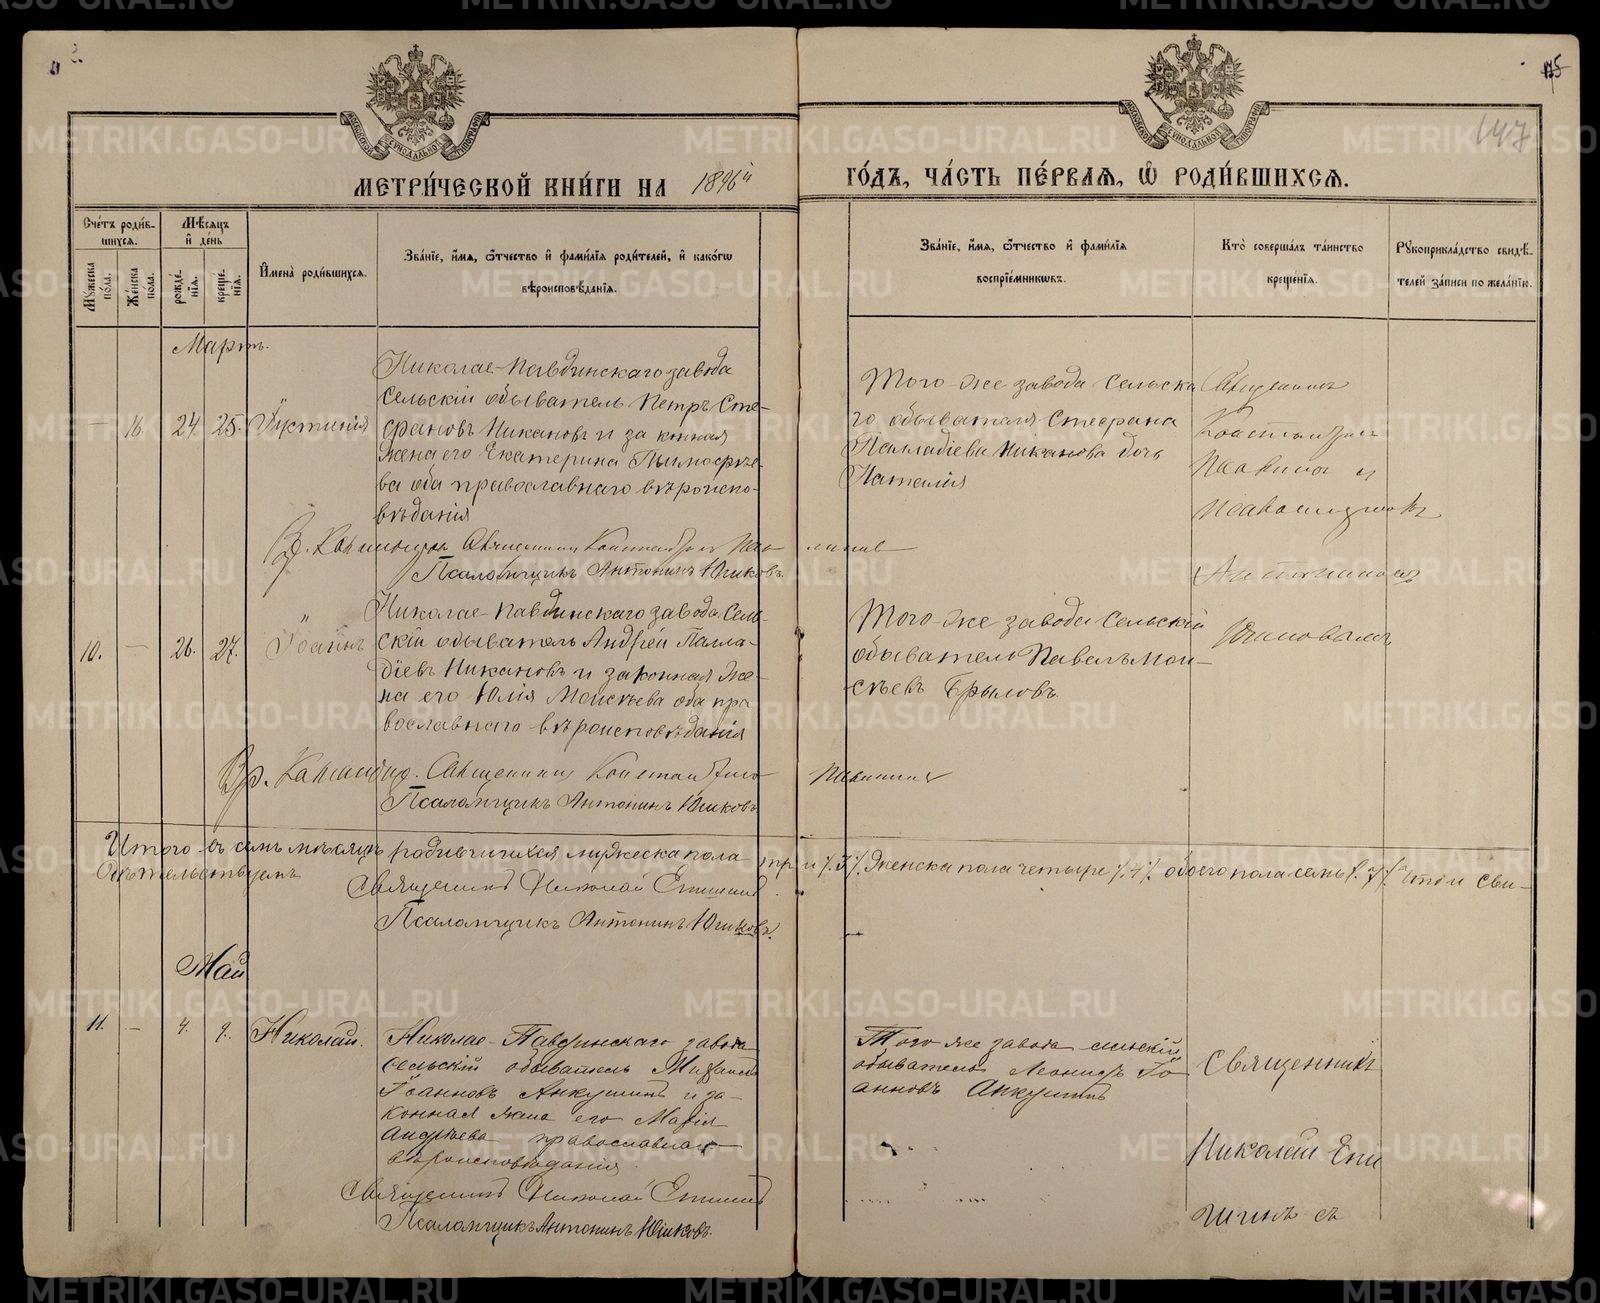 175
147
МЕТРИ́ЧЕСКОЙ КНИ́ГИ НА 1896й
ГО́ДЪ, ЧА́СТЬ ПЕ́РВАЯ, Ѿ РОДИ́ВШИХСЯ.
Сче́тъ роди́вшихся.
Му́жеска по́ла.
Же́нска по́ла.
Мѣ́сяцъ и҆ де́нь
рожде́нїя.
креще́нїя.
И҆мена̀ роди́вшихся.
Зва́нїе, и҆́мя, ѻ҆́тчество и҆ фами́лїя роди́телей, и҆ како́гѡ
вѣроисповѣ́данїя.
Зва́нїе, и҆́мя, ѻ҆́тчество и҆ фами́лїя
воспрїе́мникѡвъ.
Кто̀ соверша́лъ та́инство
креще́нїя.
Рꙋкоприкла́дство свидѣ́телей за́писи по жела́нїю.
Мартъ.
— 16 24. 25. Іустинія
Николае-Павдинскаго завода
сельскій обыватель Петръ Сте-
фановъ Никановъ и законная
жена его Екатерина
ва оба православнаго вѣроиспо-
вѣданія
Того-же завода сельска
го обывателя Стефана
Палладіева Никанова дочь
Наталія
Священникъ
Константинъ
и
Псаломщикъ
Антонинъ
Юшковъ
Священникъ Константинъ
Псаломщикъ Антонинъ Юшковъ.
10. — 26. 27. Іоаннъ
Николае-Павдинскаго завода сель-
скій обыватель Андрей Палла-
діевъ Никановъ и законная же-
на его Юлія Моисѣева оба пра
вославнаго вѣроисповѣданія
Того-же завода сельскій
обыватель Павелъ Мои-
сѣевъ Брыловъ
Священникъ Константинъ
Псаломщикъ Антонинъ Юшковъ
Итого въ семъ мѣсяцѣ родившихся мужеска пола три /.3/. женска пола четыре /.4/. обоего пола семь /.7/. Въ томъ сви-
дѣтельствуемъ
Священникъ Николай
Псаломщикъ Антонинъ Юшковъ.
Май
11. — 4. 9. Николай.
Николае-Павдинскаго завода
сельскій обыватель Михаилъ
Іоанновъ Анкушинъ и за-
конная жена его Марія
Андреева православнаго
вѣроисповѣданія
Того же завода сельскій
обыватель Леонидъ Іо
анновъ Анкушинъ
Священникъ
Николай Епи
шинъ съ
Священникъ Николай Епишинъ
Псаломщикъ Антонинъ Юшковъ.
METRIKI.GASO-URAL.RU